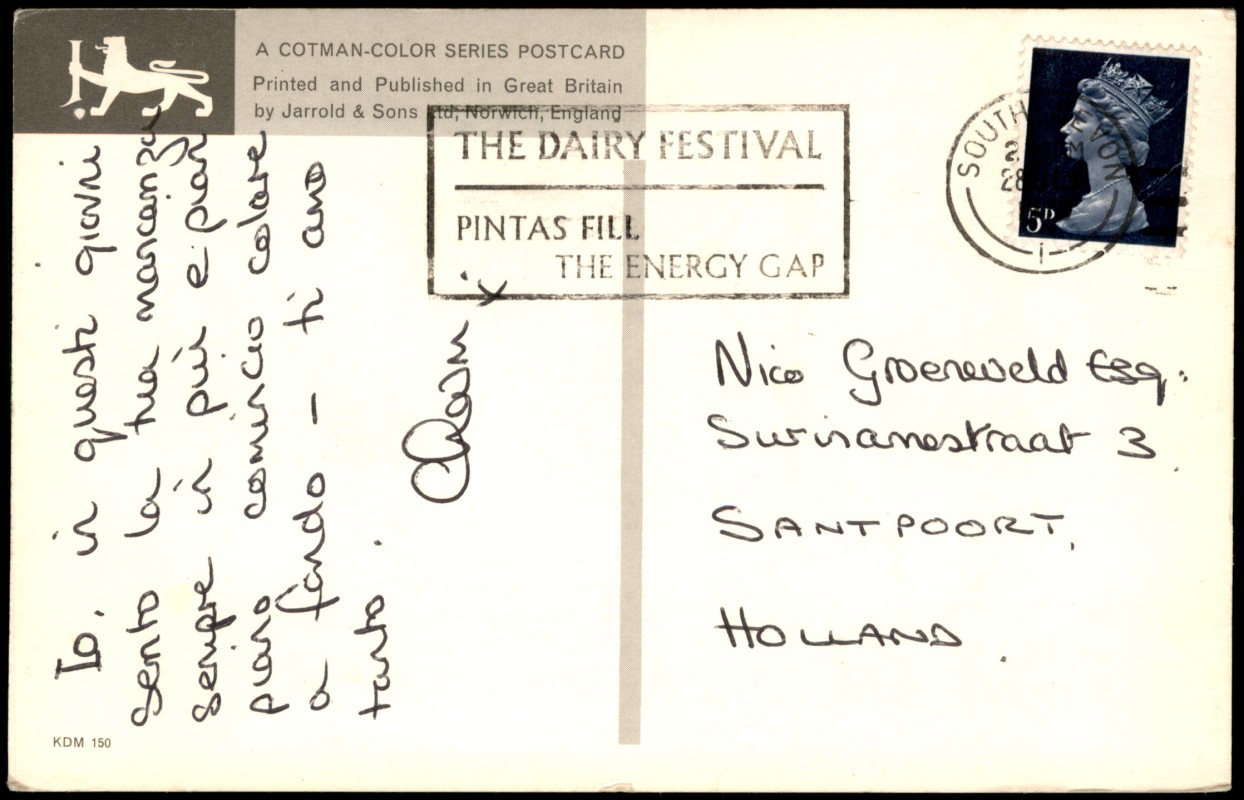 A COTMAN-COLOR SERIES POSTCARD
Printed and Published in Great Britain
by Jarrold & Sons Ltd, Norwich, England
THE DAIRY FESTIVAL
PINTAS FILL
THE ENERGY GAP
SOUTH DEVON
28
5D
1
Io, in questi giorni
sento la tua mancanza
sempre in più e pian
piano comincio colare
a fondo – ti amo
tanto.
x
Nico Groeneveld Esq.
Surinamestraat 3
SANTPOORT,
HOLLAND.
KDM 150